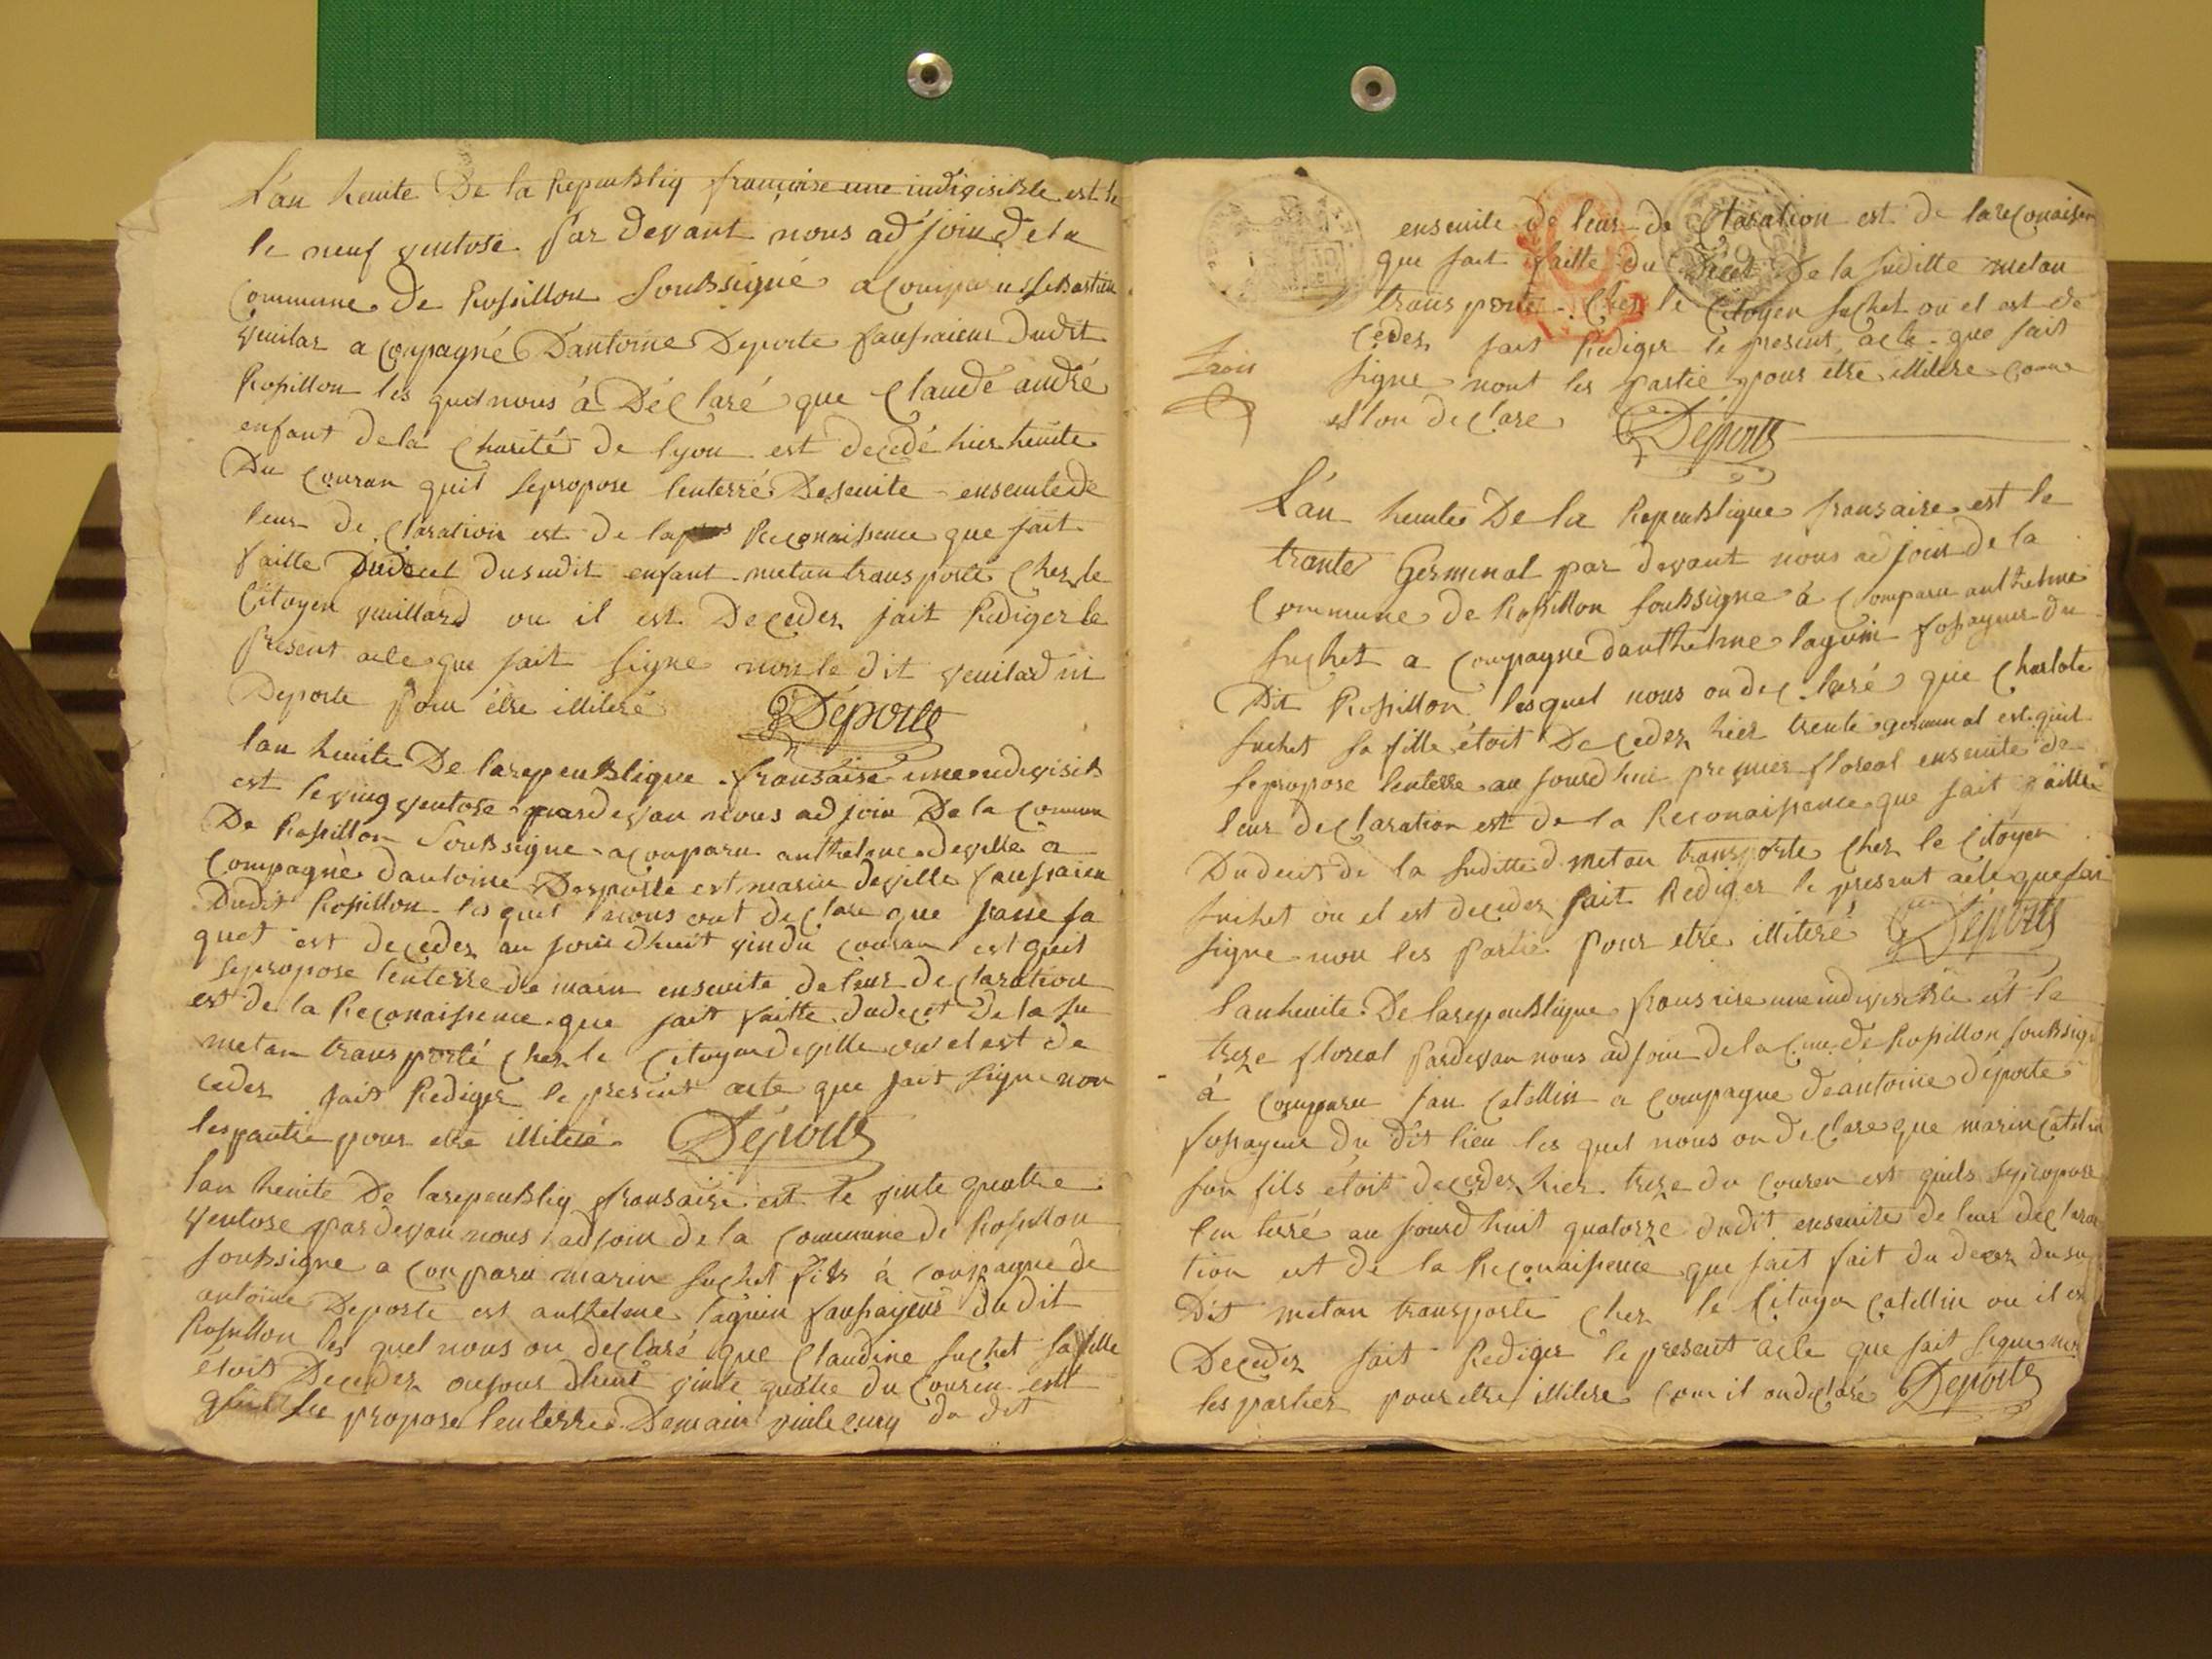 L'an heuite De la Republiq françoise une indivisible est le
le neuf ventose par devant nous adjoin de la
Commune de Rossillon Soubsigné a comparu sebastien
Venilar a compagné D'antoine Deporte faussaieur dudit
Rossillon les quel nous à Déclaré que Claude andré
enfant dela Charité de lyon est decedé hier heuite
Du couran quil sepropose lenterré De seuite ensemtede
leur de claration est de la Reconaissence que jait
faitte Dudecet dusudit enfant metan transporté Chez le
Citoyen vuillard ou il est Decedez jait Rediger le
present acte que jait signe non le dit venilard ni
Deporte pour être illiteré Déporte
lan heuite De larepeublique fransaise une indivisib
est le ving ventose par devan nous adjoin De la Comun
De Rossillon Soubsigne a conparu anthelme deville a
Compagné dantoine Desporte est marin deville faussaieu
Dudit Rossillon les quel nous ont declare que janne ja
quet est decedez au jour dhuit vin du couran est quil
sepropose lenterre de main enseuite de leur declaration
est de la Reconaissence que jait faitte dudecet de la su
metan transporté chez le Citoyen deville ou el est de
cedez jait Rediger le present acte que jait signe non
les partie pour etre illiteré Déporte
lan heuite De larepeubliq fransaise est le vinte quattre
ventose par devan nous adjoin de la Commune de Rossillon
soubsigne a conparu marin suchet fils à conpagne de
antoine Deporte est anthelme laguin faussayeur dudit
Rossillon les quel nous on declaré que Claudine suchet sa fille
étoit Decedez oujour dhuit vinte quatre du couren est
quil se propose lenterre Demain vinte cinq du dit
enseuite de leur de Claration est de lareconaisen
que jait faitte du Decet De la suditte metan
transporte Chez le Citoyen suchet ou el est dé
cedez jait Rediger le present acte que jait
trois
signe nont les partie pour être illitere come
il lon declare Déporte
L'an heuite De la Repeublique fransaise est le
trante Germinal par devant nous adjoin de la
Commune de Rossillon soubsigne à comparu anthelme
suchet a compagne danthelme laguin fossayeur du
Dit Rossillon lesquel nous on declaré que Charlote
suchet sa fille étoit Decedez hier trente germinal est quil
sepropose lenterre au jourdhui premier floreal enseuite de
leur declaration est de la Reconaissance que jait faitte
Dudecet de la suditte metan transporte Chez le Citoyen
suchet ou el est decedez jait Rediger le present acte que jai
signe non les partie pour etre illiteré Déporte
lan heuite De larepeublique fransaise une indivisible est le
treze floreal pardevan nous adjoin de la Cmne de Rossillon soubsig
à comparu jan Catellin a compagne de antoine déporte
fossayeur du dit lieu les quel nous on declare que marin Catelin
son fils étoit decedez hier treze du couren est quils sepropose
len terré au jourdhuit quatorze dudit enseuite de leur declara
tion est de la Reconaissence que jait fait du decez du su
Dit metan transporte chez le Citoyen Catellin ou il es
Decedez jait Rediger le present acte que jait signe non
les parties pour etre illitere com il ondeclaré Déporte